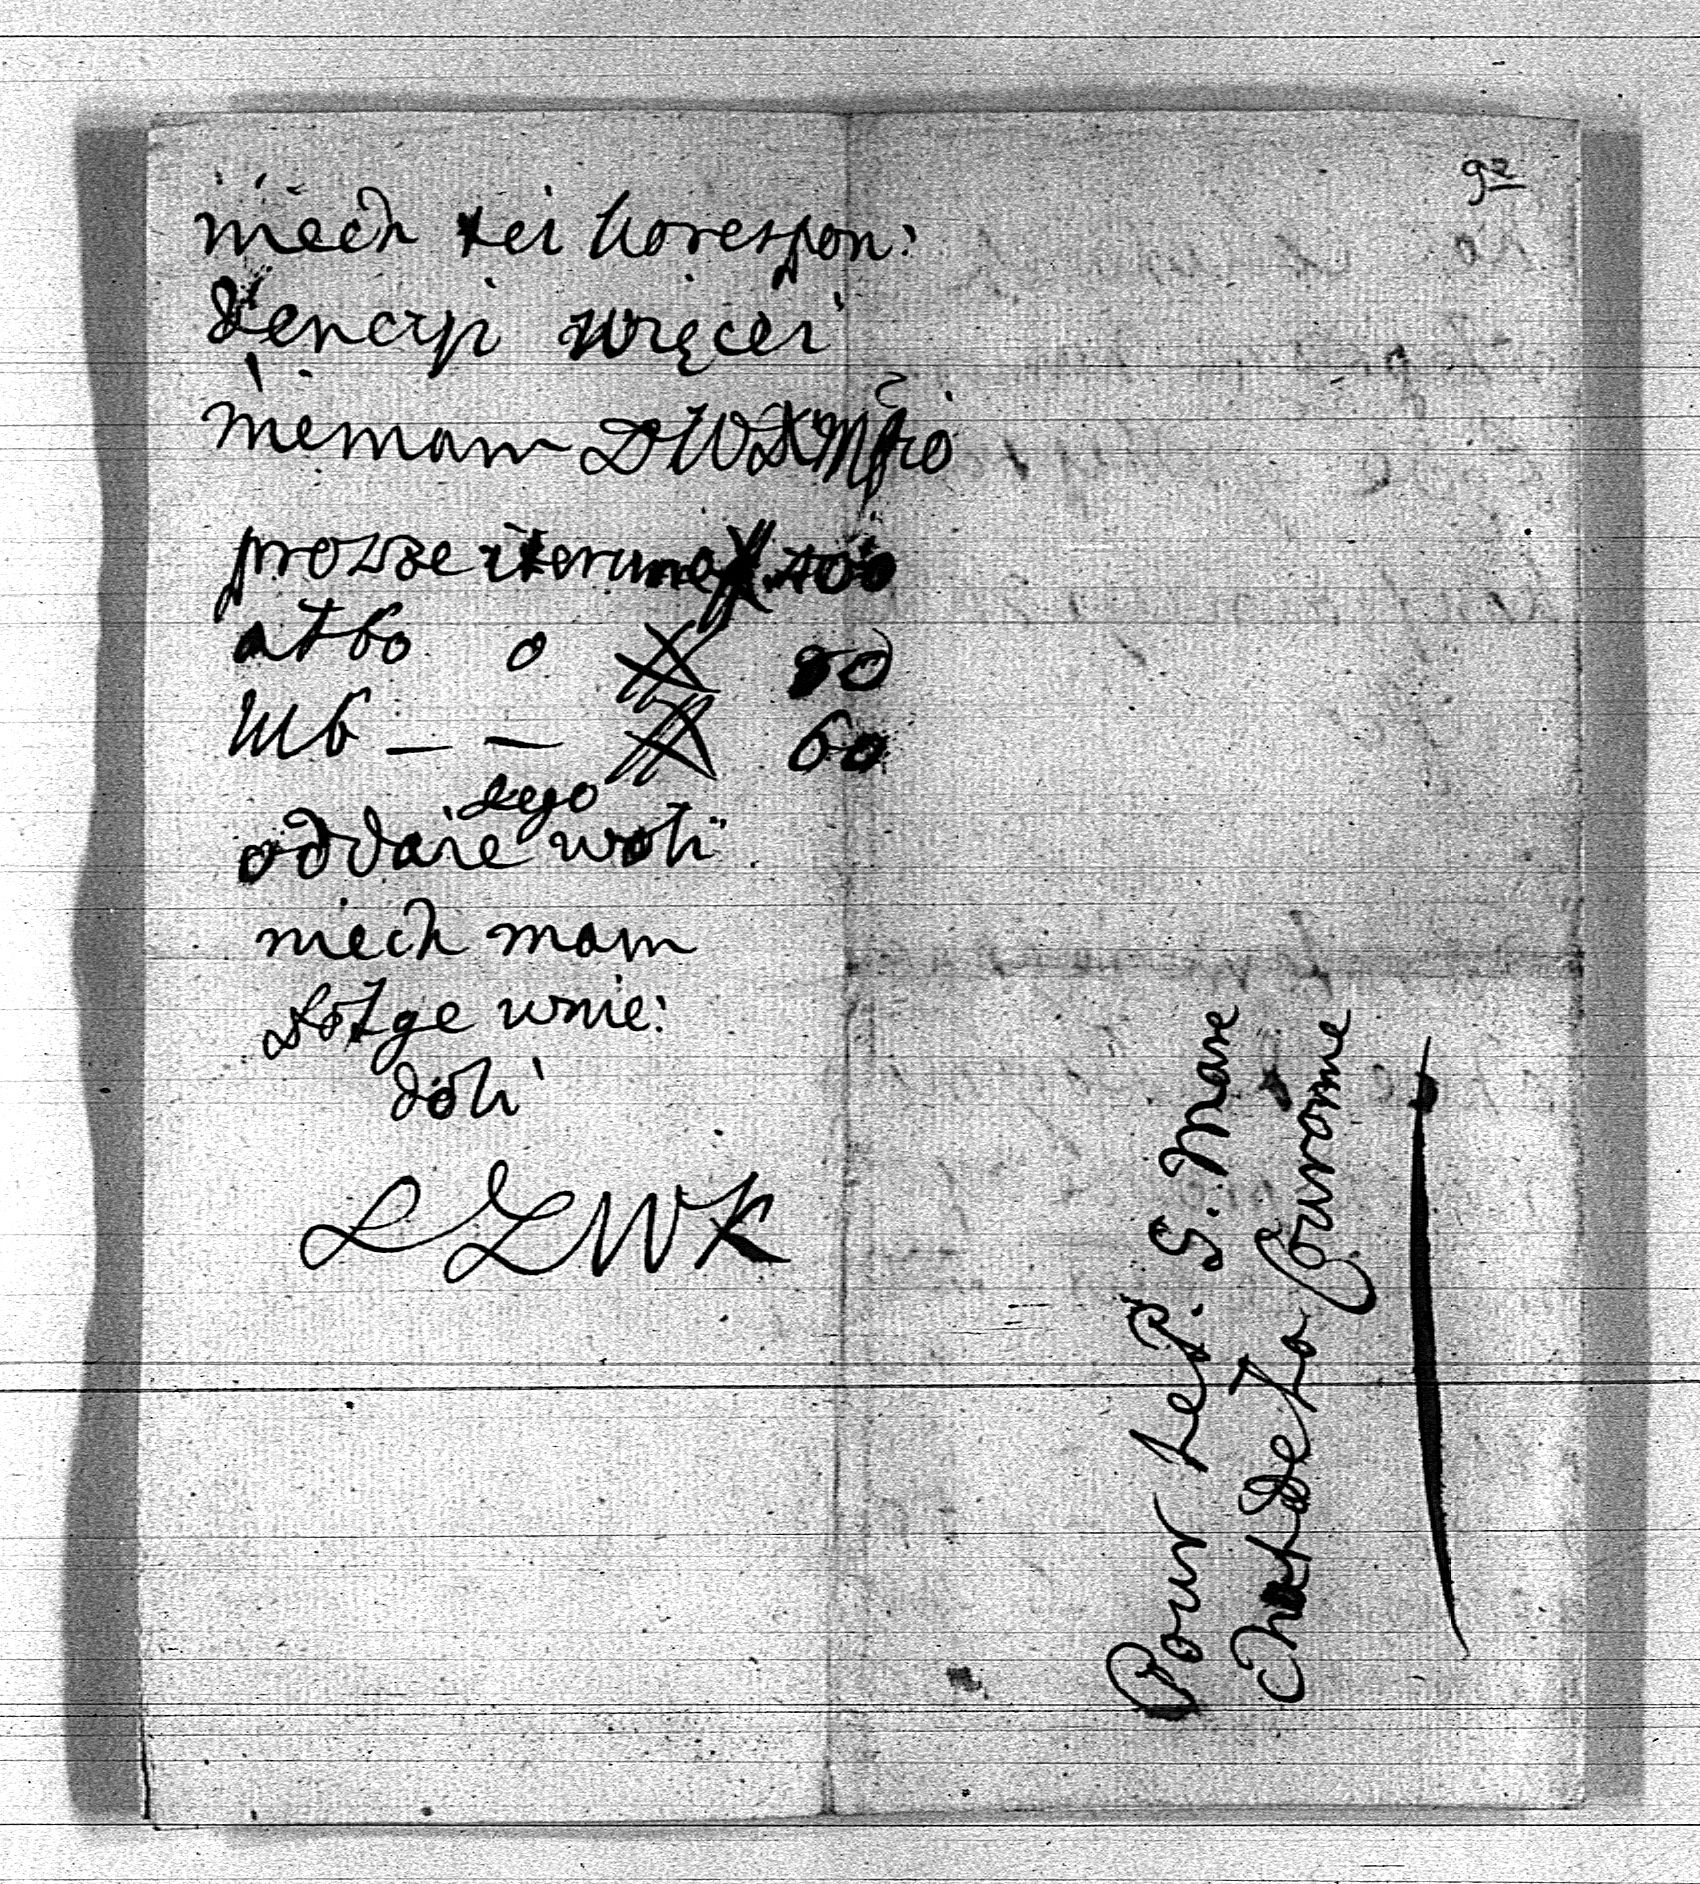 92
niech tei korespon:
dencyi więcei
niemam DWXMści
prosze iterum o # 100
albo o # 80
lub — — # 60
tego
oddaie woli
niech mam
folgę w nie:
doli
LZWK
Pour Le P. G. Mare
Chal de La Couronne